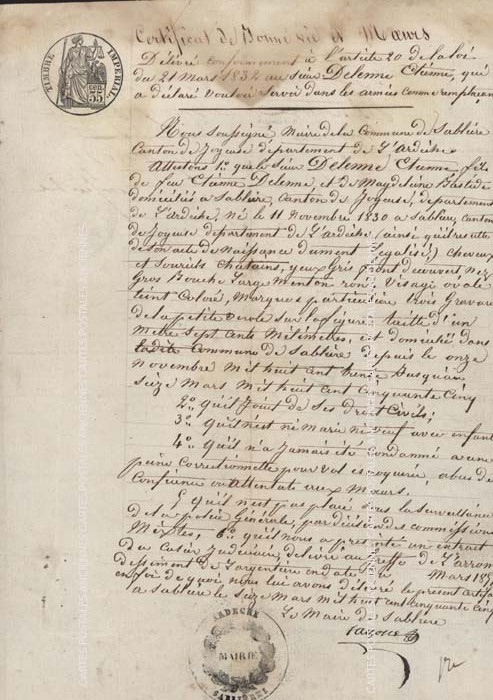 Certificat de Bonne vie et Mœurs
Délivré conformement à l'article 20 de la loi
du 21 Mars 1832 au sieur Delenne Etienne, qui
a déclaré vouloir servir dans les armées comme remplaçant
TIMBRE IMPERIAL
35
Nous soussigné Maire de la Commune de Sablière
Canton de Joyeuse département de L'Ardèche
Attestons 1o que le sieur Delenne Etienne fils
de feu Etienne Delenne, et de Magdeleine Bastide
domiciliés a Sablière, canton de Joyeuse, département
de L'ardèche, Né le 11 Novembre 1830 a Sablière, canton
de Joyeuse département de L'ardèche (ainsi qu'il resulte
de son acte de Naissance dument Legalisé,) cheveux
et Sourcils Chatains, yeux Gris front découvert Nez
Gros Bouche Large Menton rond Visage ovale
teint Coloré, Marques particulière trois Gravure
de la petite verole sur la figure taille d'un
Metre Sept cents Millimetres, et domicilié dans
ladite Commune de Sablière depuis le onze
Novembre Mil huit cent trente Jusqu'au
Seize Mars Mil huit cent cinquante Cinq
2o qu'il Jouit de Ses droit Civils;
3o qu'il n'est ni marié ni veuf avec enfant
4o qu'il n'a Jamais été condamné a une
peine correctionnelle pour vol escroquerie, abus de
Confience ou Attentats aux Mœurs.
5 qu'il n'est pas placé sous la Surveillance
de la police Générale, par décision des commissions
Mixtes, 6o qu'il nous a présenté un extrait
du Casier Judiciaire, délivré au Greffe de L'arron
dissement de Largentière en date Mars 185
en foi de quoi Nous lui avons délivré le présent
a Sablière le Seize Mars Mil huit cent cinquante cinq
Le Maire de Sablière
ARDECHE
MAIRIE